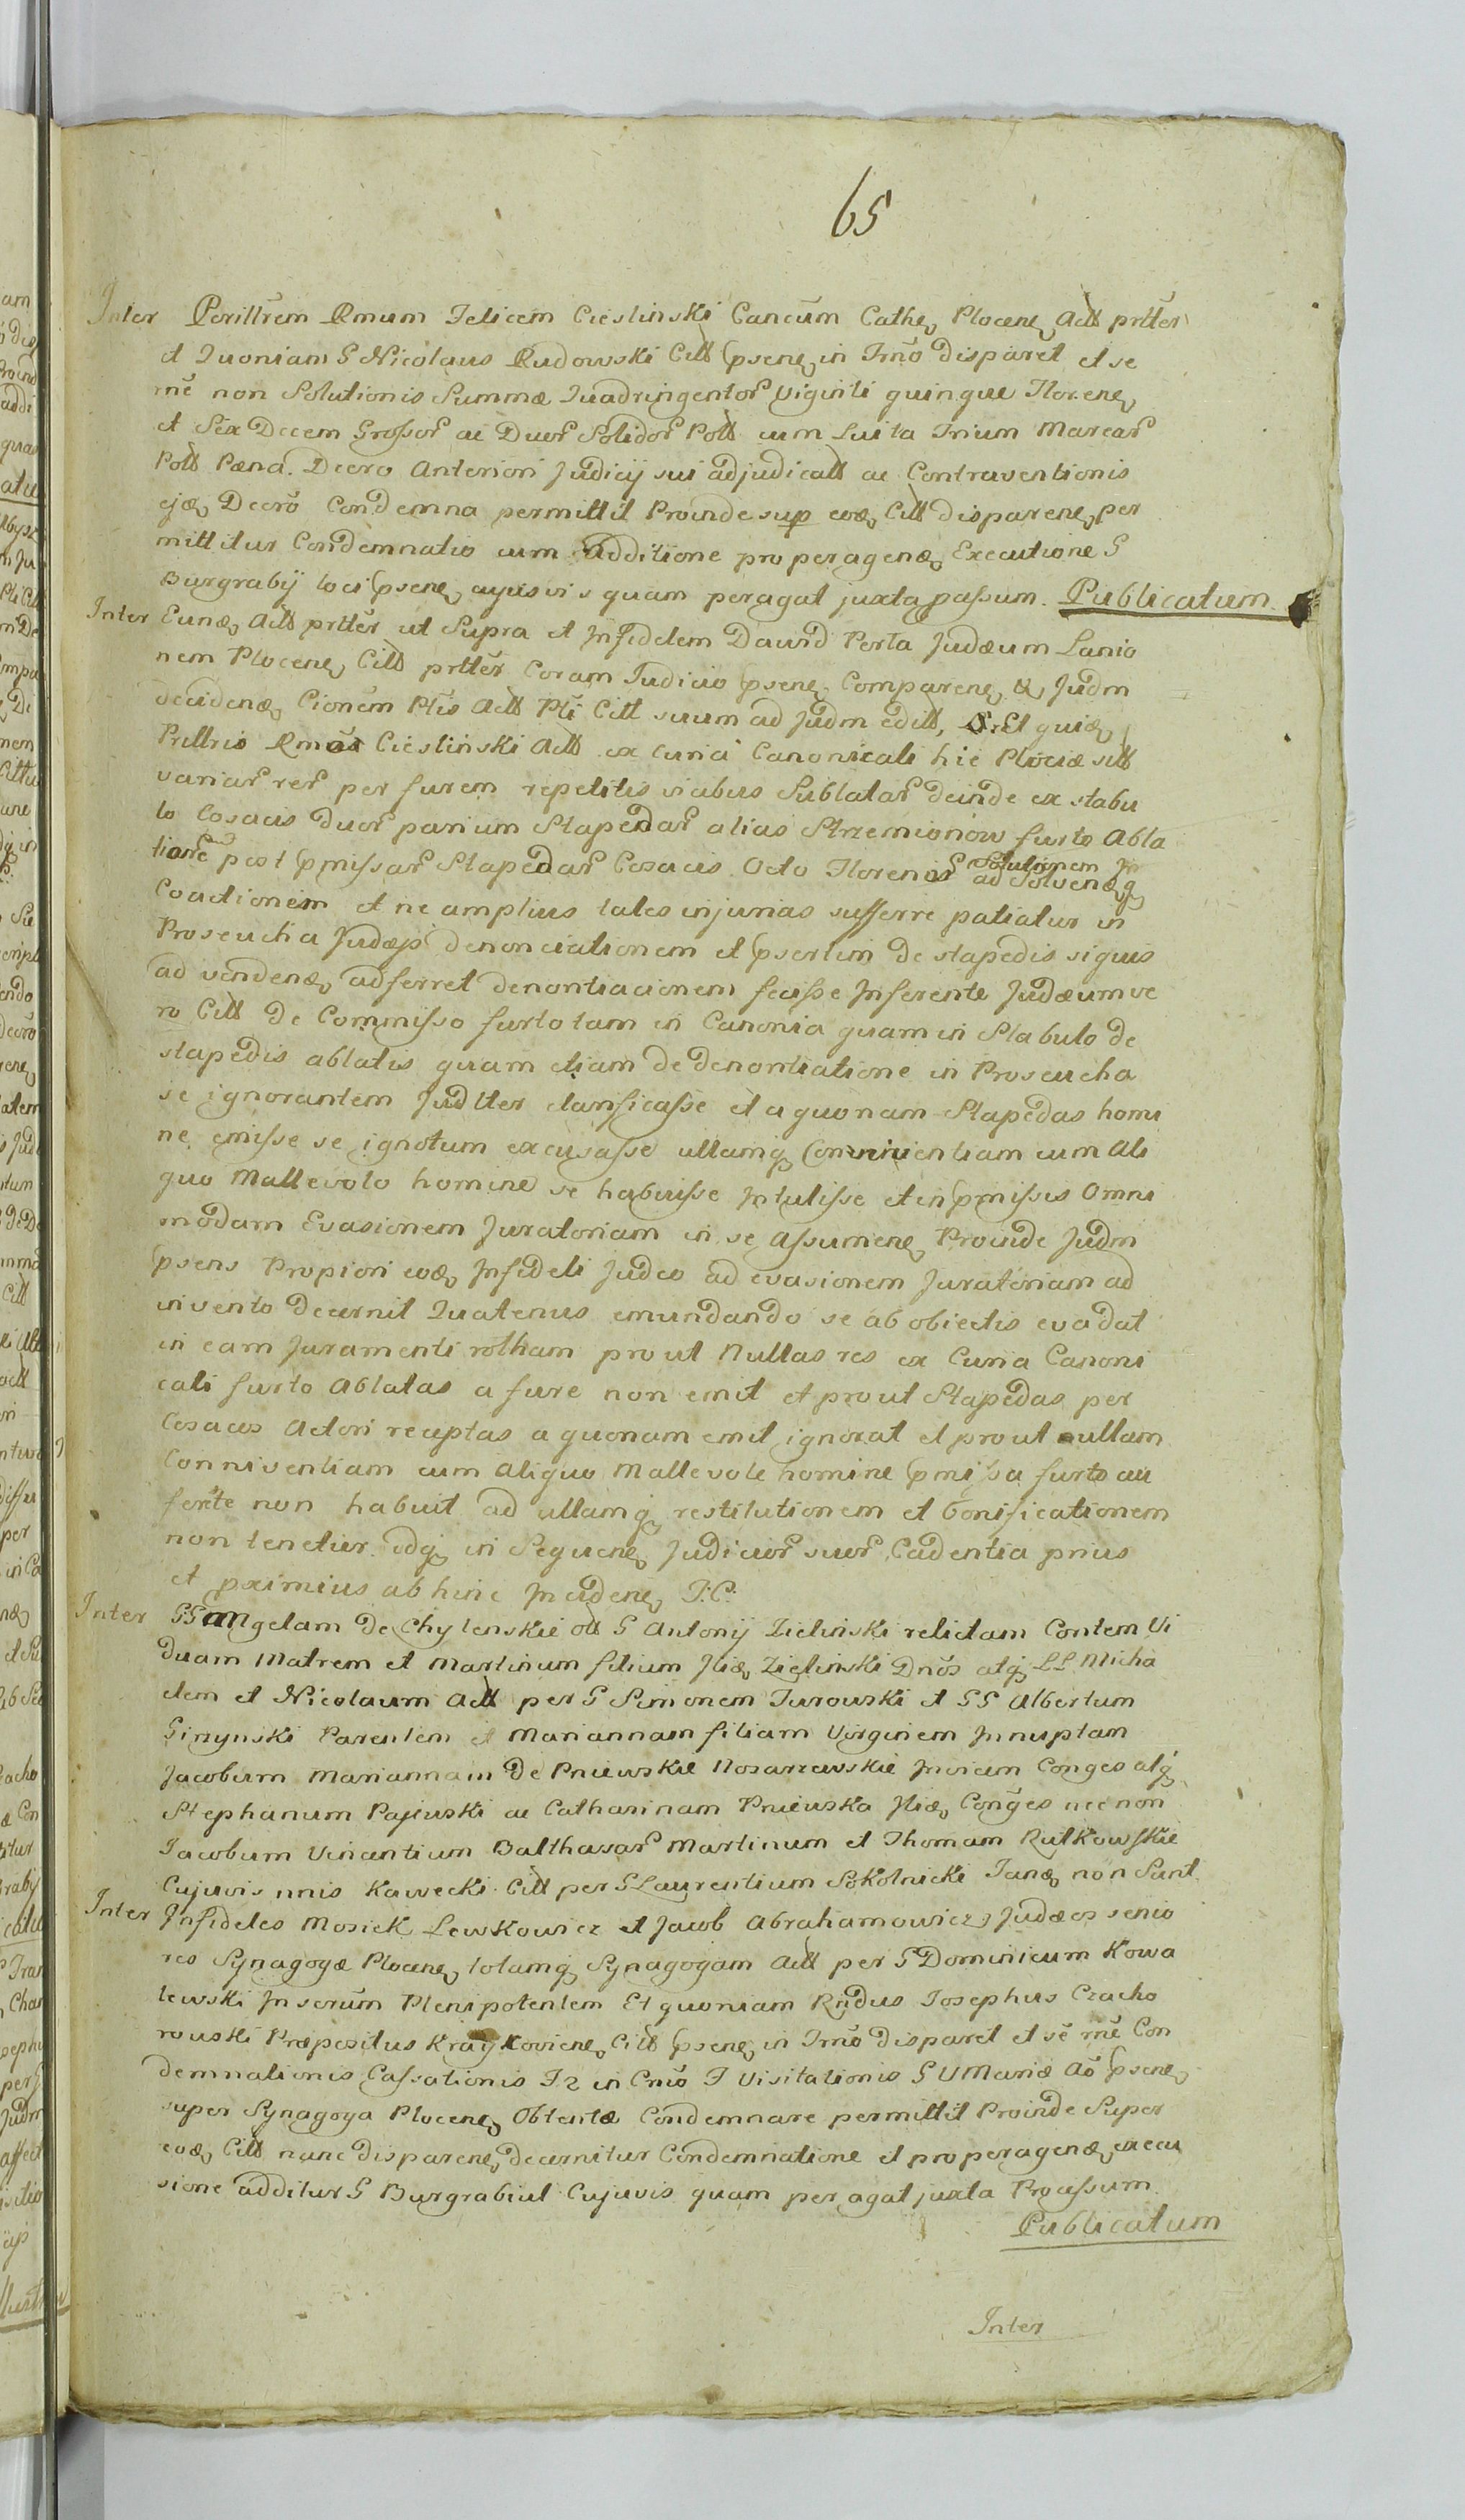 65
Inter Perillrem Rmum Felicem Cieslinski Cancum Cathe Plocene Actt prtter
et Quoniam G Nicolaus Rudowski Citt psene in Trno disparet et se
me non Solutionis Summæ Quadringentor Viginti quinque Florene
et Sex Decem Grossor ac Duor Solidor Pott cum Luita Trium Marcar
Pott Pæna. Decro Anteriori Judicij sui adjudicatt ac Contraventionis
ejæ Decro Condemna permittit Proinde sup eoæ Citt disparene per
mittitur Condemnatio cum additione pro peragenæ Executione G
Burgrabij loci psene cujusvis quam peragat juxta passum. Publicatum.
Inter Eunæ Actt prtter ut Supra et Infidelem Dawid Perla Judæum Lanio
nem Plocene Citt prtter Coram Judicio psene Comparene & Judm
decidenæ Cionem Ptis Actt Pti Citt suum ad Judm editt, Et quiæ
Prillris Rmus Cieslinski Actt ex Curia Canonicali hic Plociæ sitt
variar rer per furem repetitis viabus Sublatar deinde ex stabu
lo Cosacis duor parium Stapedar alias Strzemionow furto Abla
tione post pmissar Stapedar Cosacis Octo Florenis G Solutionem Jn
ad Solvenæ g
Coactionem et ne amplius tales injurias sufferre patiatur in
Proseucha Judæis denonciationem et psertim de stapedis siquis
ad vendenæ adferret denontiacionem fecisse Jnferente Judæum ve
ro Citt de Commisso furto tam in Canonia quam in Stabulo de
stapedis ablatis quam etiam de denontiatione in Proseucha
se ignorantem Judtter clarificasse et a quonam Stapedas homi
ne emisse se ignotum excusasse ullamq Conniventiam cum Ali
quo Mallevolo homine se habuisse Jntulisse et in pmissis Omni
modam Evasionem Juratoriam in se Assumene Proinde Judm
psens Propiori eoæ Jnfideli Judeo ad evasionem Juratoriam ad
invento decernit Quatenus emundando se ab obiectis evadat
in eam Juramenti rotham prout Nullas res ex Curia Canoni
cali furto Ablatas a fure non emit et prout Stapedas per
Cosacos Actori receptas a quonam emit ignorat et prout nullam
Conniventiam cum Aliquo Mallevole homine pmissa furto au
ferte non habuit ad ullamq restitutionem et bonificationem
non tenetur idq in Sequene Judicior suor Cadentia prius
et pximius ab hinc Jncidene T: C:
Inter GG Angelam de Chylenskie ott G Antonij Zielinski relictam Contem Vi
duam Matrem et Martinum filium Jtiæ Zielinski Dnos atq LL Micha
elem et Nicolaum Actt per G Simonem Turowski et GG Albertum
Girzynski Parentem et Mariannam filiam Virginem Jnnuptam
Jacobum Mariannam de Pniewskie Nosarzewskie Jnvicem Conges atq
Stephanum Pajewski ac Catharinam Pniewska Jtiæ Conges nec non
Jacobum Vincentium Balthasar Martinum et Thomam Rutkowskie
Cujuvis nnis Kawecki Citt per G Laurentium Sokolnicki Janæ non Sunt
Inter Jnfideles Mosiek Lewkowicz et Jacob Abrahamowicz Judæos senio
res Synagogæ Plocene totamq Synagogam Actt per G Dominicum Kowa
lewski Jn serum Plenipotentem Et quoniam Rndus Josephus Czacho
rowski Præpositus Kraykoviene Citt psene in Trno disparet et se me Con
demnationis Cassationis T2 in Cnio F Visitationis G V Mariæ Ao psene
super Synagoga Plocene Obtentæ Condemnare permittit Proinde Super
eoæ Citt nunc disparene decernitur Condemnatione et pro peragenæ execu
sione additur G Burgrabiut Cujuvis quam peragat juxta Processum.
Publicatum
Inter